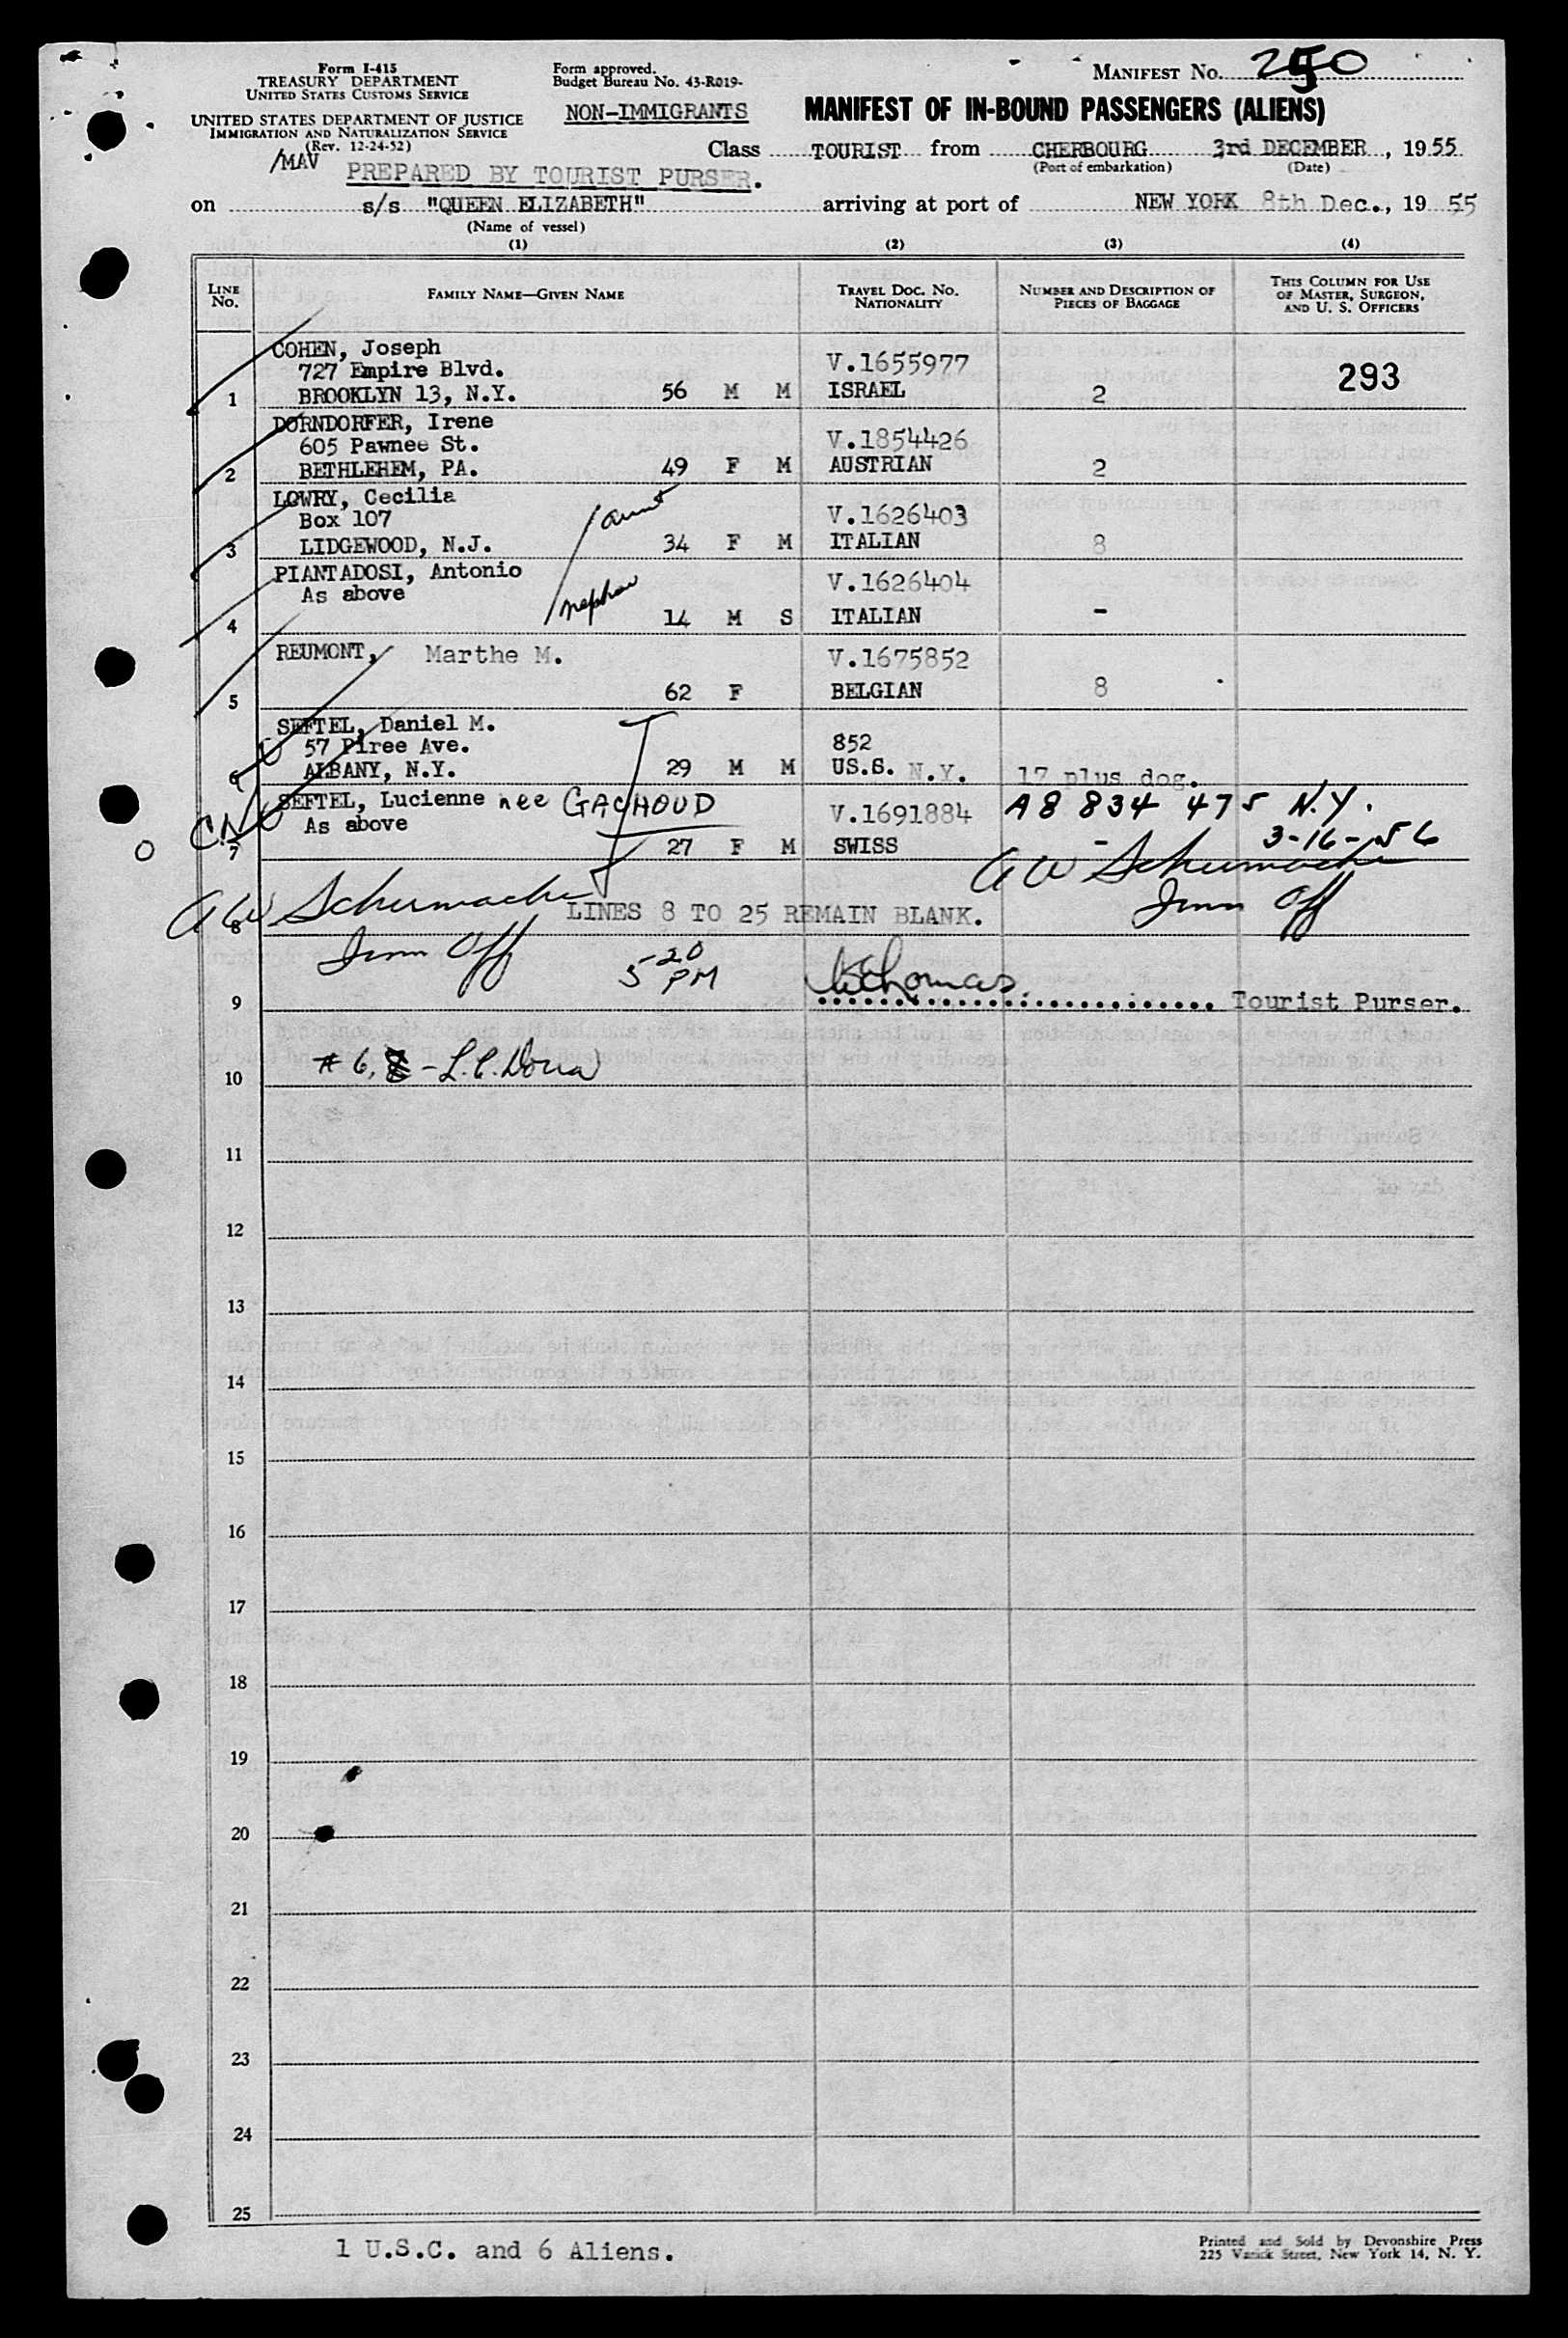 Form I-415
TREASURY DEPARTMENT
UNITED STATES CUSTOMS SERVICE
UNITED STATES DEPARTMENT OF JUSTICE
IMMIGRATION AND NATURALIZATION SERVICE
(Rev. 12-24-52)
Form approved.
Budget Bureau No. 43-R019-
NON-IMMIGRANTS
MANIFEST No. 250
MANIFEST OF IN-BOUND PASSENGERS (ALIENS)
/MAV PREPARED BY TOURIST PURSER.
Class TOURIST from CHERBOURG 3rd DECEMBER, 1955
(Port of embarkation) (Date)
on s/s "QUEEN ELIZABETH" arriving at port of NEW YORK 8th Dec., 1955
(Name of vessel)
(1) (2) (3) (4)
LINE No. FAMILY NAME—GIVEN NAME TRAVEL DOC. NO. NATIONALITY NUMBER AND DESCRIPTION OF PIECES OF BAGGAGE THIS COLUMN FOR USE OF MASTER, SURGEON, AND U. S. OFFICERS
COHEN, Joseph
727 Empire Blvd. V.1655977 293
1 BROOKLYN 13, N.Y. 56 M M ISRAEL 2
DORNDORFER, Irene
605 Pawnee St. V.1854426
2 BETHLEHEM, PA. 49 F M AUSTRIAN 2
LOWRY, Cecilia
Box 107 aunt V.1626403
3 LIDGEWOOD, N.J. 34 F M ITALIAN 8
PIANTADOSI, Antonio V.1626404
As above nephew
4 14 M S ITALIAN -
REUMONT, Marthe M. V.1675852
5 62 F BELGIAN 8
SEFTEL, Daniel M.
57 Piree Ave. 852
6 ALBANY, N.Y. 29 M M US.S. N.Y. 17 plus dog.
SEFTEL, Lucienne nee GACHOUD V.1691884 A8 834 475 N.Y.
As above 3-16-56
7 27 F M SWISS -
A W Schumacher A W Schumacher
8 LINES 8 TO 25 REMAIN BLANK.
Imm Off Imm Off
5-20 PM
9 Tourist Purser.
10 # 6,
11
12
13
14
15
16
17
18
19
20
21
22
23
24
25
1 U.S.C. and 6 Aliens.
Printed and Sold by Devonshire Press
225 Varick Street, New York 14, N. Y.